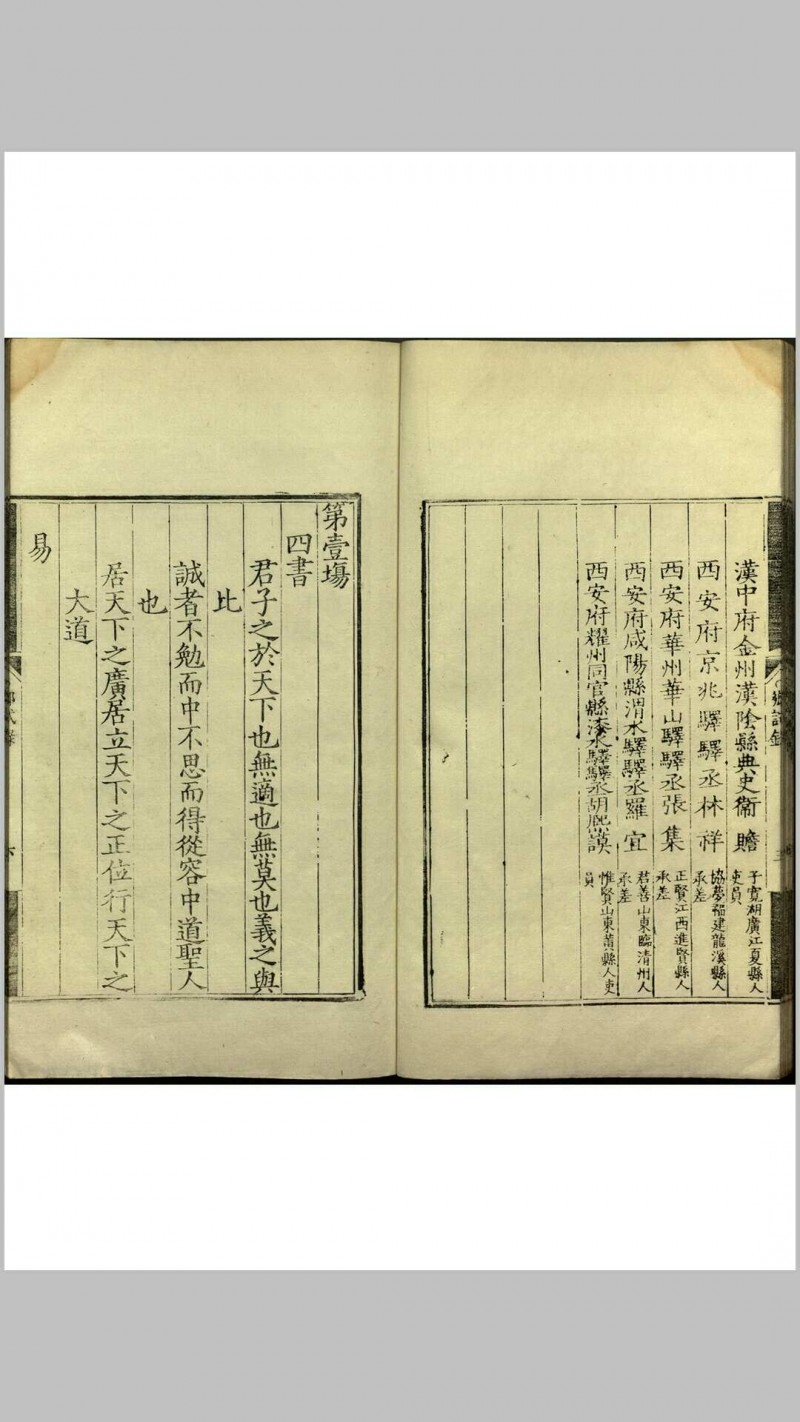 漢中府金州漢陰縣典史衛瞻 子寬湖廣江夏縣人
吏員
西安府京兆驛驛丞林祥 協夢福建龍溪縣人
承差
西安府華州華山驛驛丞張集 正賢江西進賢縣人
承差
西安府咸陽縣渭水驛驛丞羅宜 君善山東臨清州人
承差
西安府耀州同官縣漆水驛驛丞胡 惟賢山東黃縣人吏
員
第壹塲
四書
君子之於天下也無適也無莫也義之與
比
誠者不勉而中不思而得從容中道聖人
也
居天下之廣居立天下之正位行天下之
大道
易